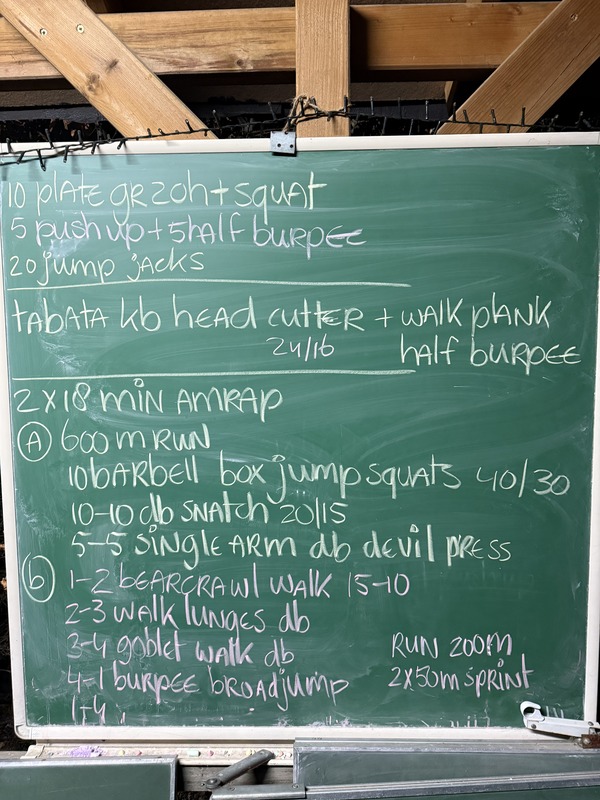 10 plate gr2oh + squat
5 push up + 5 half burpee
20 jump jacks
tabata kb head cutter + walk plank
24/16 half burpee
2 x 18 min AMRAP
A 600 m RUN
10 barbell box jump squats 40/30
10-10 db snatch 20/15
5-5 single arm db devil press
b 1-2 bearcrawl walk 15-10
2-3 walk lunges db
3-4 goblet walk db
RUN 200m
4-1 burpee broadjump
2x50m sprint
1-4